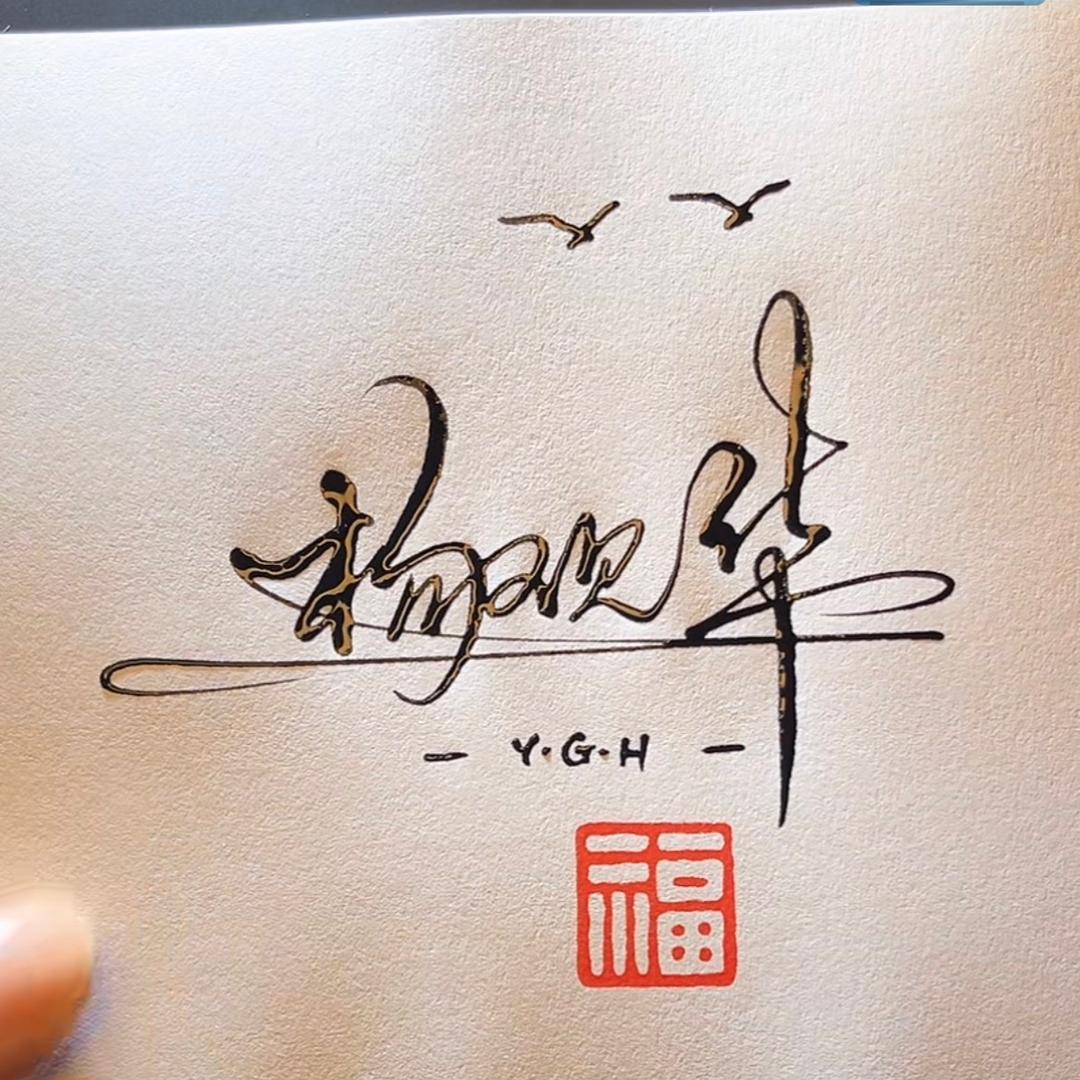 杨观华
Y·G·H
福